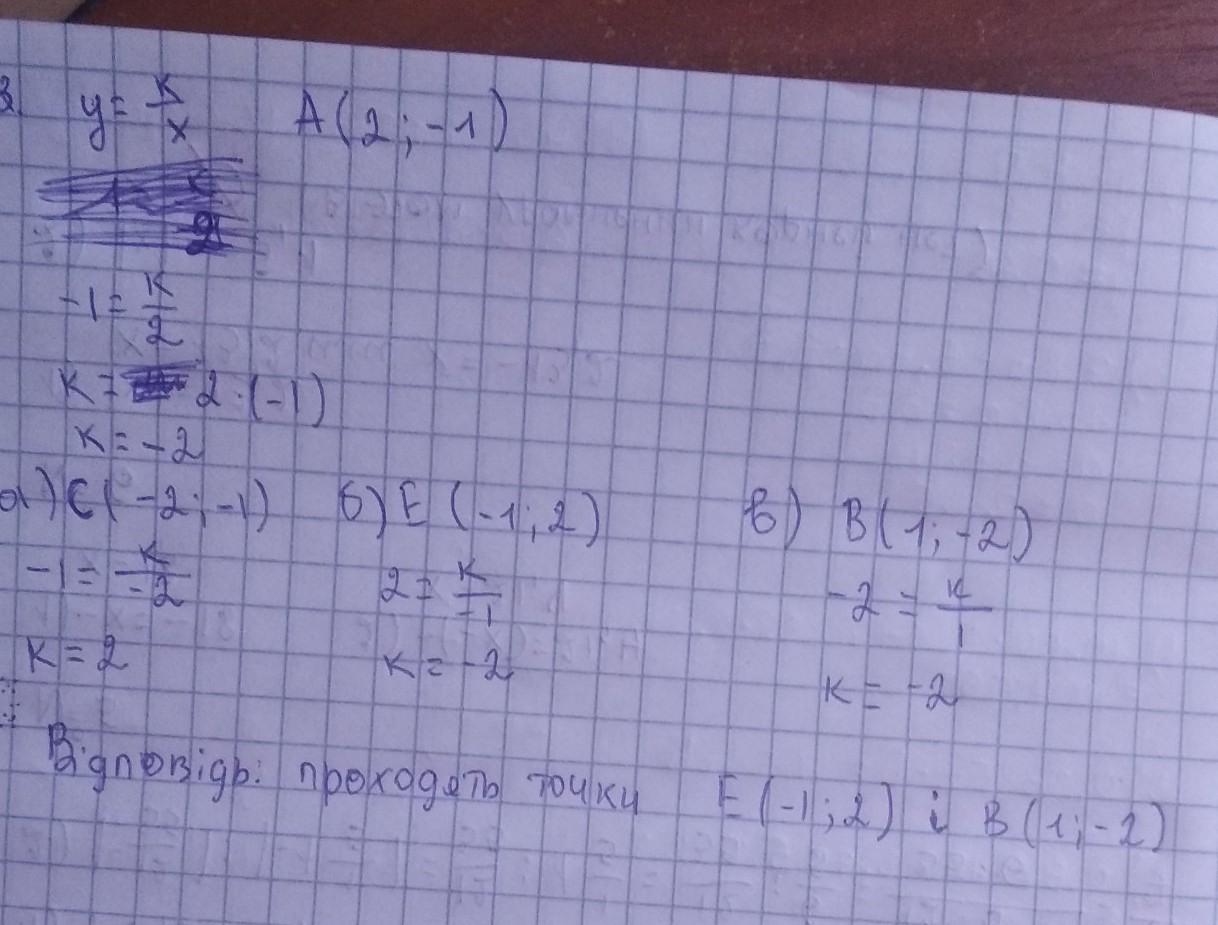 3 y = к/x A(2; -1)
-1 = к/2
к = 2·(-1)
к = -2
а) С(-2; -1) б) E (-1; 2) в) B(1; -2)
-1 = к/-2 2 = к/-1 -2 = к/1
к = 2 к = -2 к = -2
Відповідь: проходять точки E(-1; 2) і B(1; -2)